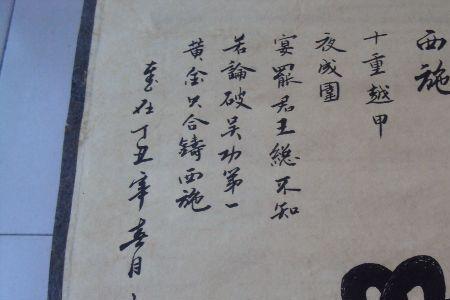 西施
十重越甲
夜成圍
宴罷君王總不知
若論破吳功第一
黄金只合鑄西施
歲在丁丑年春月